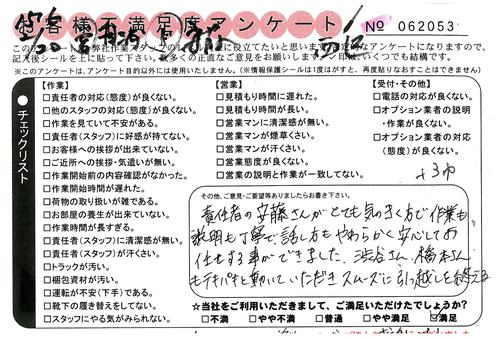 お客様不満足度アンケート
№ 062053
このアンケートは弊社作業スタッフの
に役立てたいと思います
定的なアンケートになりますので、
記入後シールを上に貼って下さい。数多くの正直なご意見をお願いします
印は、いくつでも結構です。
※このアンケートは、アンケート目的以外には使用いたしません。(※情報保護シールは1度はがすと、再度貼りなおすことはできません)
●チェックリスト
【作業】
□責任者の対応(態度)が良くない。
□他のスタッフの対応(態度)が良くない。
□作業を見ていて不安がある。
□責任者(スタッフ)に好感が持てない。
□お客様への挨拶が出来ていない。
□ご近所への挨拶・気遣いが無い。
□作業開始前の内容確認がなかった。
□作業開始時間が遅れた。
□荷物の取り扱いが雑である。
□お部屋の養生が出来ていない。
□作業時間が長すぎる。
□責任者(スタッフ)に清潔感が無い。
□責任者(スタッフ)が汗くさい。
□トラックが汚い。
□梱包資材が汚い。
□運転が不安(下手)である。
□靴下の履き替えをしてない。
□スタッフにやる気がみられない。
【営業】
□見積もり時間に遅れた。
□見積もり時間が長い。
□営業マンに清潔感が無い。
□営業マンが煙草くさい。
□営業マンが汗くさい。
□営業態度が良くない。
□営業の説明と作業が一致してない。
【受付・その他】
□電話の対応が良くない。
□オプション業者の説明
・作業が良くない。
□オプション業者の対応
(態度)が良くない。
その他、ご意見・ご要望等ありましたらお書き下さい。
責任者の安藤さんがとても気のきく方で作業も
説明も丁寧で話し方もやわらかく安心してお
任せする事ができました。渋谷さん、橋本さん
もテキパキと動いていただきスムーズに引っ越しを終える
☆当社をご利用いただきまして、ご満足いただけたでしょうか?
□不満 □やや不満 □普通 □やや満足 □満足